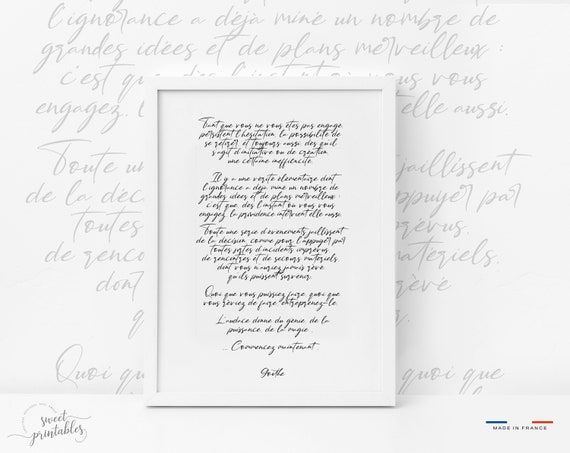 l'ignorance a déjà miné un nombre de
grandes idées et de plans merveilleux :
c'est que, dès l'instant où vous vous
engagez, elle aussi.
Toute une jaillissent
de la déci appuyer par
Toutes imprévus,
de rencon matériels,
dont
Quoi que quoi que
Tant que vous ne vous êtes pas engagé,
persistent l'hésitation, la possibilité de
se retirer, et toujours aussi, dès qu'il
s'agit d'initiative ou de création,
une certaine inefficacité.
Il y a une vérité élémentaire dont
l'ignorance a déjà miné un nombre de
grandes idées et de plans merveilleux :
c'est que, dès l'instant où vous vous
engagez, la providence intervient elle aussi.
Toute une série d'évènements jaillissent
de la décision, comme pour l'appuyer par
toutes sortes d'incidents imprévus,
de rencontres et de secours matériels,
dont vous n'auriez jamais rêvé
qu'ils puissent survenir.
Quoi que vous puissiez faire, quoi que
vous rêviez de faire, entreprenez-le.
L'audace donne du génie, de la
puissance, de la magie...
... Commencez maintenant...
Goethe
sweet
printables
MADE IN FRANCE